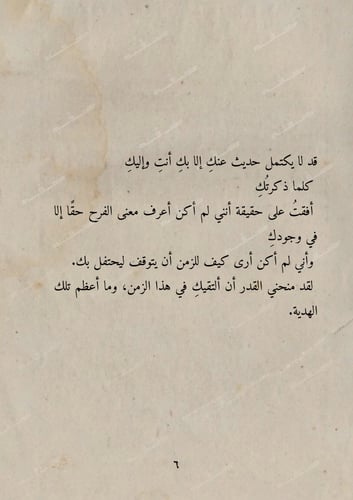 قد لا يكتمل حديث عنكِ إلا بكِ أنتِ وإليكِ
كلما ذكرتُكِ
أفقتُ على حقيقة أنني لم أكن أعرف معنى الفرح حقًا إلا
في وجودكِ
وأني لم أكن أرى كيف للزمن أن يتوقف ليحتفل بك.
لقد منحني القدر أن ألتقيكِ في هذا الزمن، وما أعظم تلك
الهدية.
٦